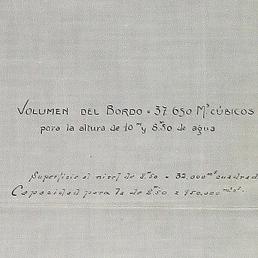 VOLUMEN DEL BORDO = 37 650 M³ CÚBICOS
para la altura de 10 m y 8.50 de agua
Superficie al nivel de 8.50 = 32,000 m² cuadrad
Capacidad para la de 8.50 =